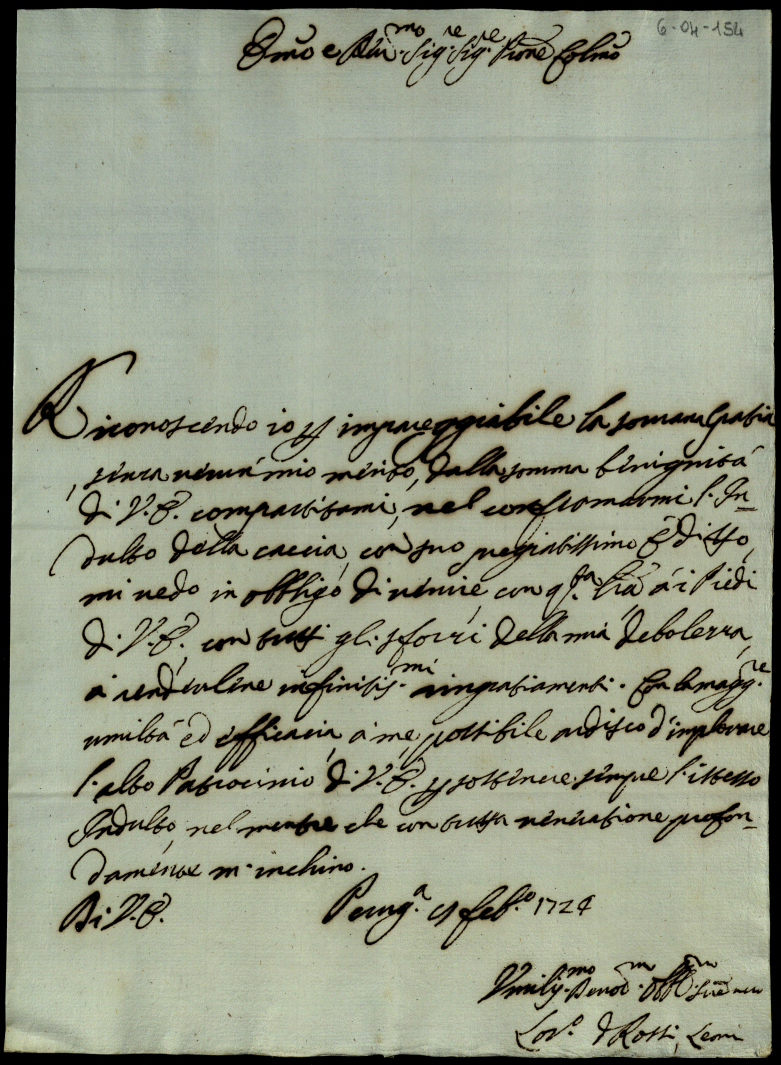 6-04-154
Emo e Rev.mo Sig.re Sig.re Prone Colmo
Riconoscendo io p impareggiabile la sovrana Gratia
, senza verun mio merito, dalla somma benignità
di V. E. compartitami, nel confirmarmi l'In=
dulto della caccia, con suo pregiatissimo Editto,
mi vedo in obbligo di venire, con q.sta l'ra à i Piedi
di V. E. con tutti gli sforzi della mia debolezza,
à renderlene infinitiss.mi ringratiamenti. Con la magg.re
umiltà ed efficacia, à me possibile ardisco d'implorare
l'alto Patrocinio di V. E. p sostenere sempre l'istesso
Indulto, nel mentre che con tutta veneratione profon=
damente m'inchino.
Di V. E.
Perug.a feb.o 1724
Umiliss.mo Devot.mo Obb.mo
Lod.o Rossi, Leoni